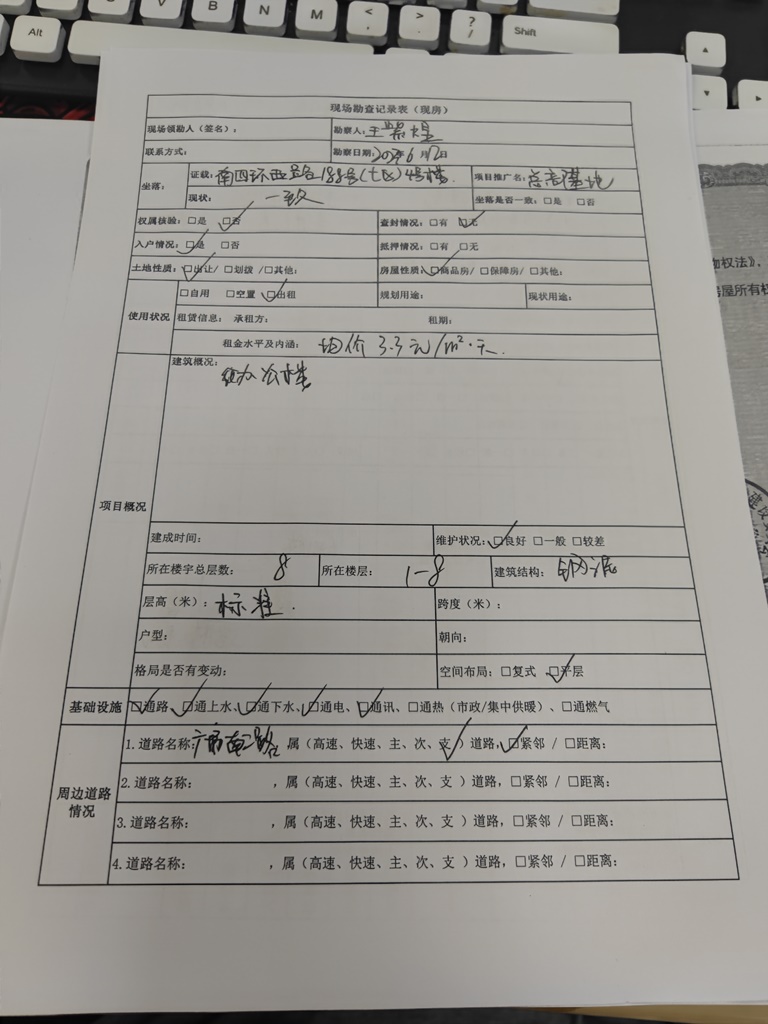 Alt
V
B
N
M
< ,
> .
? /
Shift
现场勘查记录表（现房）
现场领勘人（签名）： 勘察人：王
联系方式： 勘察日期：6月12日
坐落： 证载：南四环西路188号（七区）4号楼 项目推广名：总部基地
现状：一致 坐落是否一致：□是 □否
权属核验：□是 ☑否 查封情况：□有 ☑无
入户情况：☑是 □否 抵押情况：□有 □无
土地性质：☑出让/ □划拨 /□其他： 房屋性质：☑商品房/ □保障房/ □其他：
使用状况 □自用 □空置 ☑出租 规划用途： 现状用途：
租赁信息： 承租方： 租期：
租金水平及内涵： 均价 3.3元/m²·天.
项目概况
建筑概况：
办公楼
建成时间： 维护状况：☑良好 □一般 □较差
所在楼宇总层数： 8 所在楼层： 1-8 建筑结构： 钢混
层高（米）：标准. 跨度（米）：
户型： 朝向：
格局是否有变动： 空间布局：□复式 ☑平层
基础设施 ☑通路、☑通上水、☑通下水、☑通电、☑通讯、□通热（市政/集中供暖）、□通燃气
周边道路情况
1.道路名称： 路，属（高速、快速、主、次、支✓）道路，☑紧邻 / □距离：
2.道路名称： ，属（高速、快速、主、次、支 ）道路，□紧邻 / □距离：
3.道路名称： ，属（高速、快速、主、次、支 ）道路，□紧邻 / □距离：
4.道路名称： ，属（高速、快速、主、次、支 ）道路，□紧邻 / □距离：
权法》，
房屋所有权